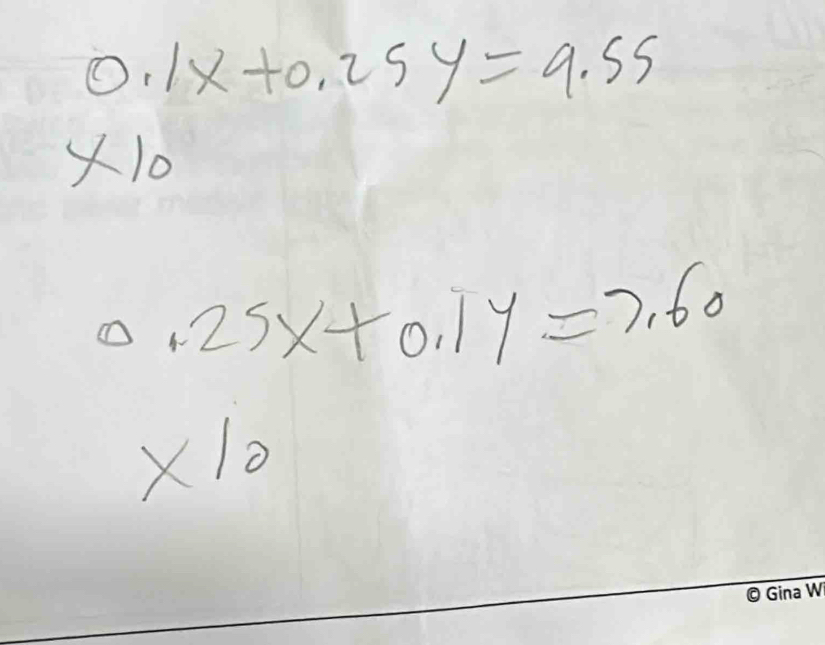 0.1x+0.25y=9.55
x10
0.25x+0.1y=7.60
x10
© Gina Wi